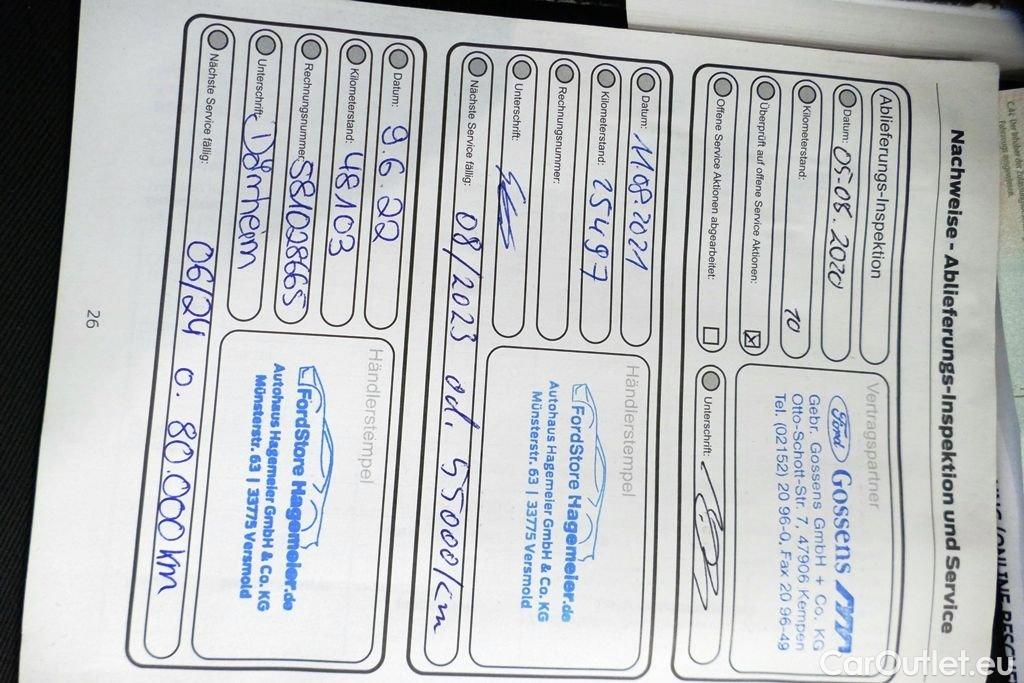 Nachweise - Ablieferungs-Inspektion und Service
Ablieferungs-Inspektion
Datum: 05.08.2020
Kilometerstand: 10
Überprüft auf offene Service Aktionen:
Offene Service Aktionen abgearbeitet:
Vertragspartner
Ford Gossens
Gebr. Gossens GmbH + Co. KG
Otto-Schott-Str. 7, 47906 Kempen
Tel. (02152) 20 96-0, Fax 20 96-49
Unterschrift:
Datum: 11.08.2021
Kilometerstand: 25497
Rechnungsnummer:
Unterschrift:
Nächste Service fällig: 08/2023 od. 55000/km
Händlerstempel
FordStore Hagemeier.de
Autohaus Hagemeier GmbH & Co. KG
Münsterstr. 63 | 33775 Versmold
Datum: 9.6.22
Kilometerstand: 48103
Rechnungsnummer: 581028665
Unterschrift: Dörnheim
Nächste Service fällig: 06/24 o. 80.000 km
Händlerstempel
FordStore Hagemeier.de
Autohaus Hagemeier GmbH & Co. KG
Münsterstr. 63 | 33775 Versmold
26
CarOutlet.eu